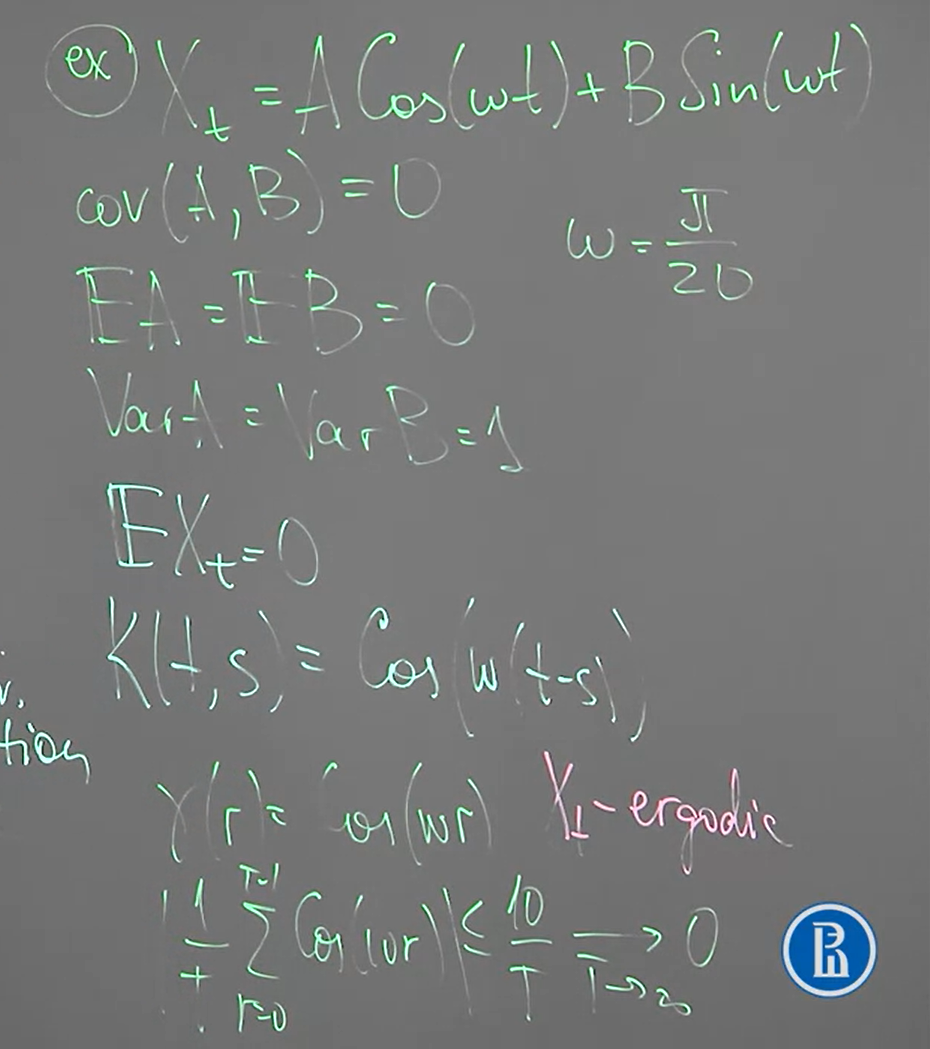 ex) X_t = A Cos(ωt) + B Sin(ωt)
cov(A, B) = 0
ω = π/20
𝔼A = 𝔼B = 0
Var A = Var B = 1
𝔼X_t = 0
K(t, s) = Cos(ω(t-s))
tion
γ(r) = Cos(ωr) X_t - ergodic
|1/T ∑_{r=0}^{T-1} Cos(ωr)| ≤ 10/T →_{T→∞} 0